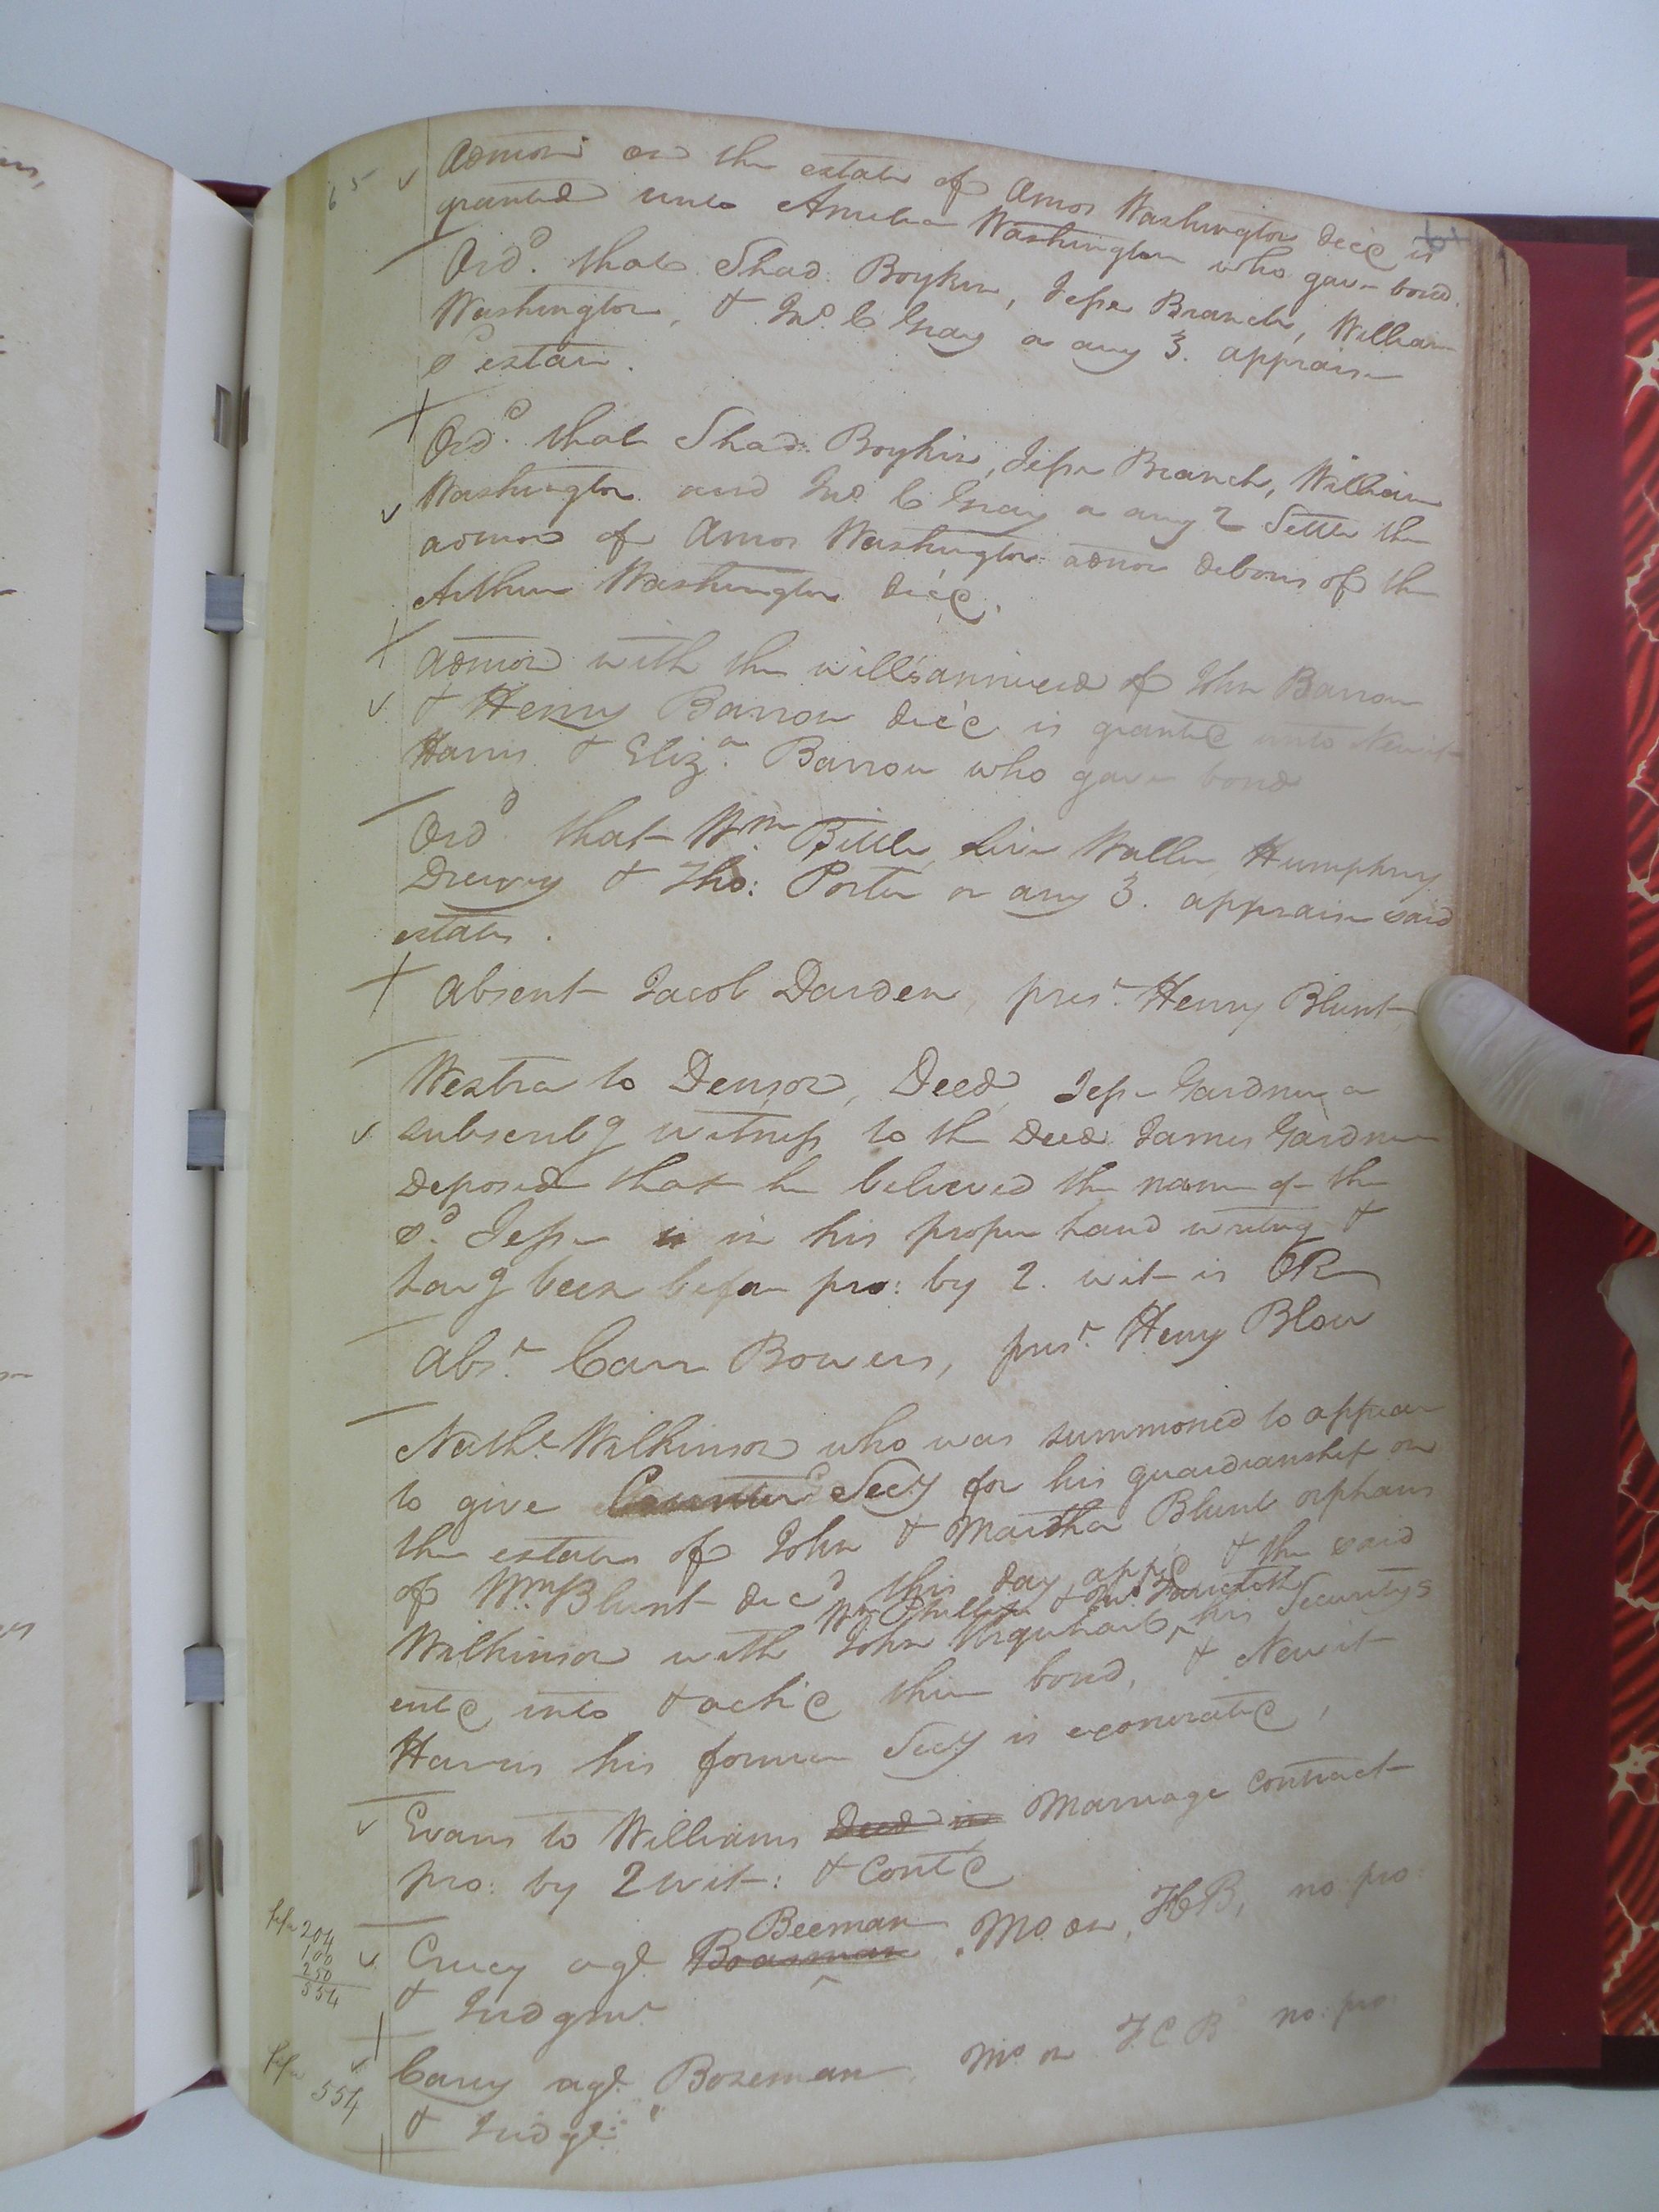 65
Admon on the estate of Amos Washington dec'd is
granted unto Amelia Washington who gave bond.
Ord^d. that Shad: Boykin, Jesse Branch, William
Washington, & Jno. C Gray or any 3. appraise
s^d estate.
Ord^d. that Shad: Boykin, Jesse Branch, William
Washington and Jno C Gray or any 2 Settle the
admon of Amos Washington admor debonis of the
Arthur Washington dec'd.
Admon with the will annexed of John Barrow
& Henry Barrow dec'd is granted unto Newit
Harris & Eliz^a. Barrow who gave bond
Ord^d that Wm Bittle, Waller, Humphrey
Drewry & Tho: Porter or any 3. appraise said
estates.
Absent Jacob Darden, pres^t. Henry Blunt
Westra to Denson, Deed, Jesse Gardner a
subscrib^g witness to the Deed James Gardner
deposed that he believed the name of the
s^d. Jesse is in his proper hand writing &
hav^g been before pro: by 2. wit is OR
Abs^t. Carr Bowers, pres^t. Henry Blow
Nath^l. Wilkinson who was summoned to appear
to give Counter Secy for his guardianship on
the estates of John & Martha Blunt orphans
of Wm Blunt dec^d this day app^d & the said
Wm Phillips & Jno
Wilkinson with John Urquhart, his Securitys
ent^d into & ack'd their bond, & Newit
Harris his former Secy is exonerated,
Evans to Williams Deed in Marriage Contract
pro: by 2 wit: & Cont^d
Beeman
Crucy ag^t. Boasman. Mo. on, HB, no pro:
& Judgm^t
204
100
250
554
Carry ag^t. Bozeman, Mo. on F.C B no. pro:
& Judg^t.
554